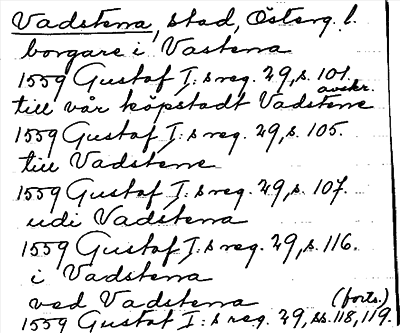 Vadstena, stad, Österg. l.
borgare i Vastena
1559 Gustaf I: s reg. 29, s. 101.
avskr.
till vår köpstadt Vadstene
1559 Gustaf I: s reg. 29, s. 105.
till Vadstene
1559 Gustaf I: s reg. 29, s. 107.
udi Vadstena
1559 Gustaf I: s reg. 29, s. 116.
i Vadstena
ved Vadstena (forts.)
1559 Gustaf I: s reg. 29, ss. 118, 119.